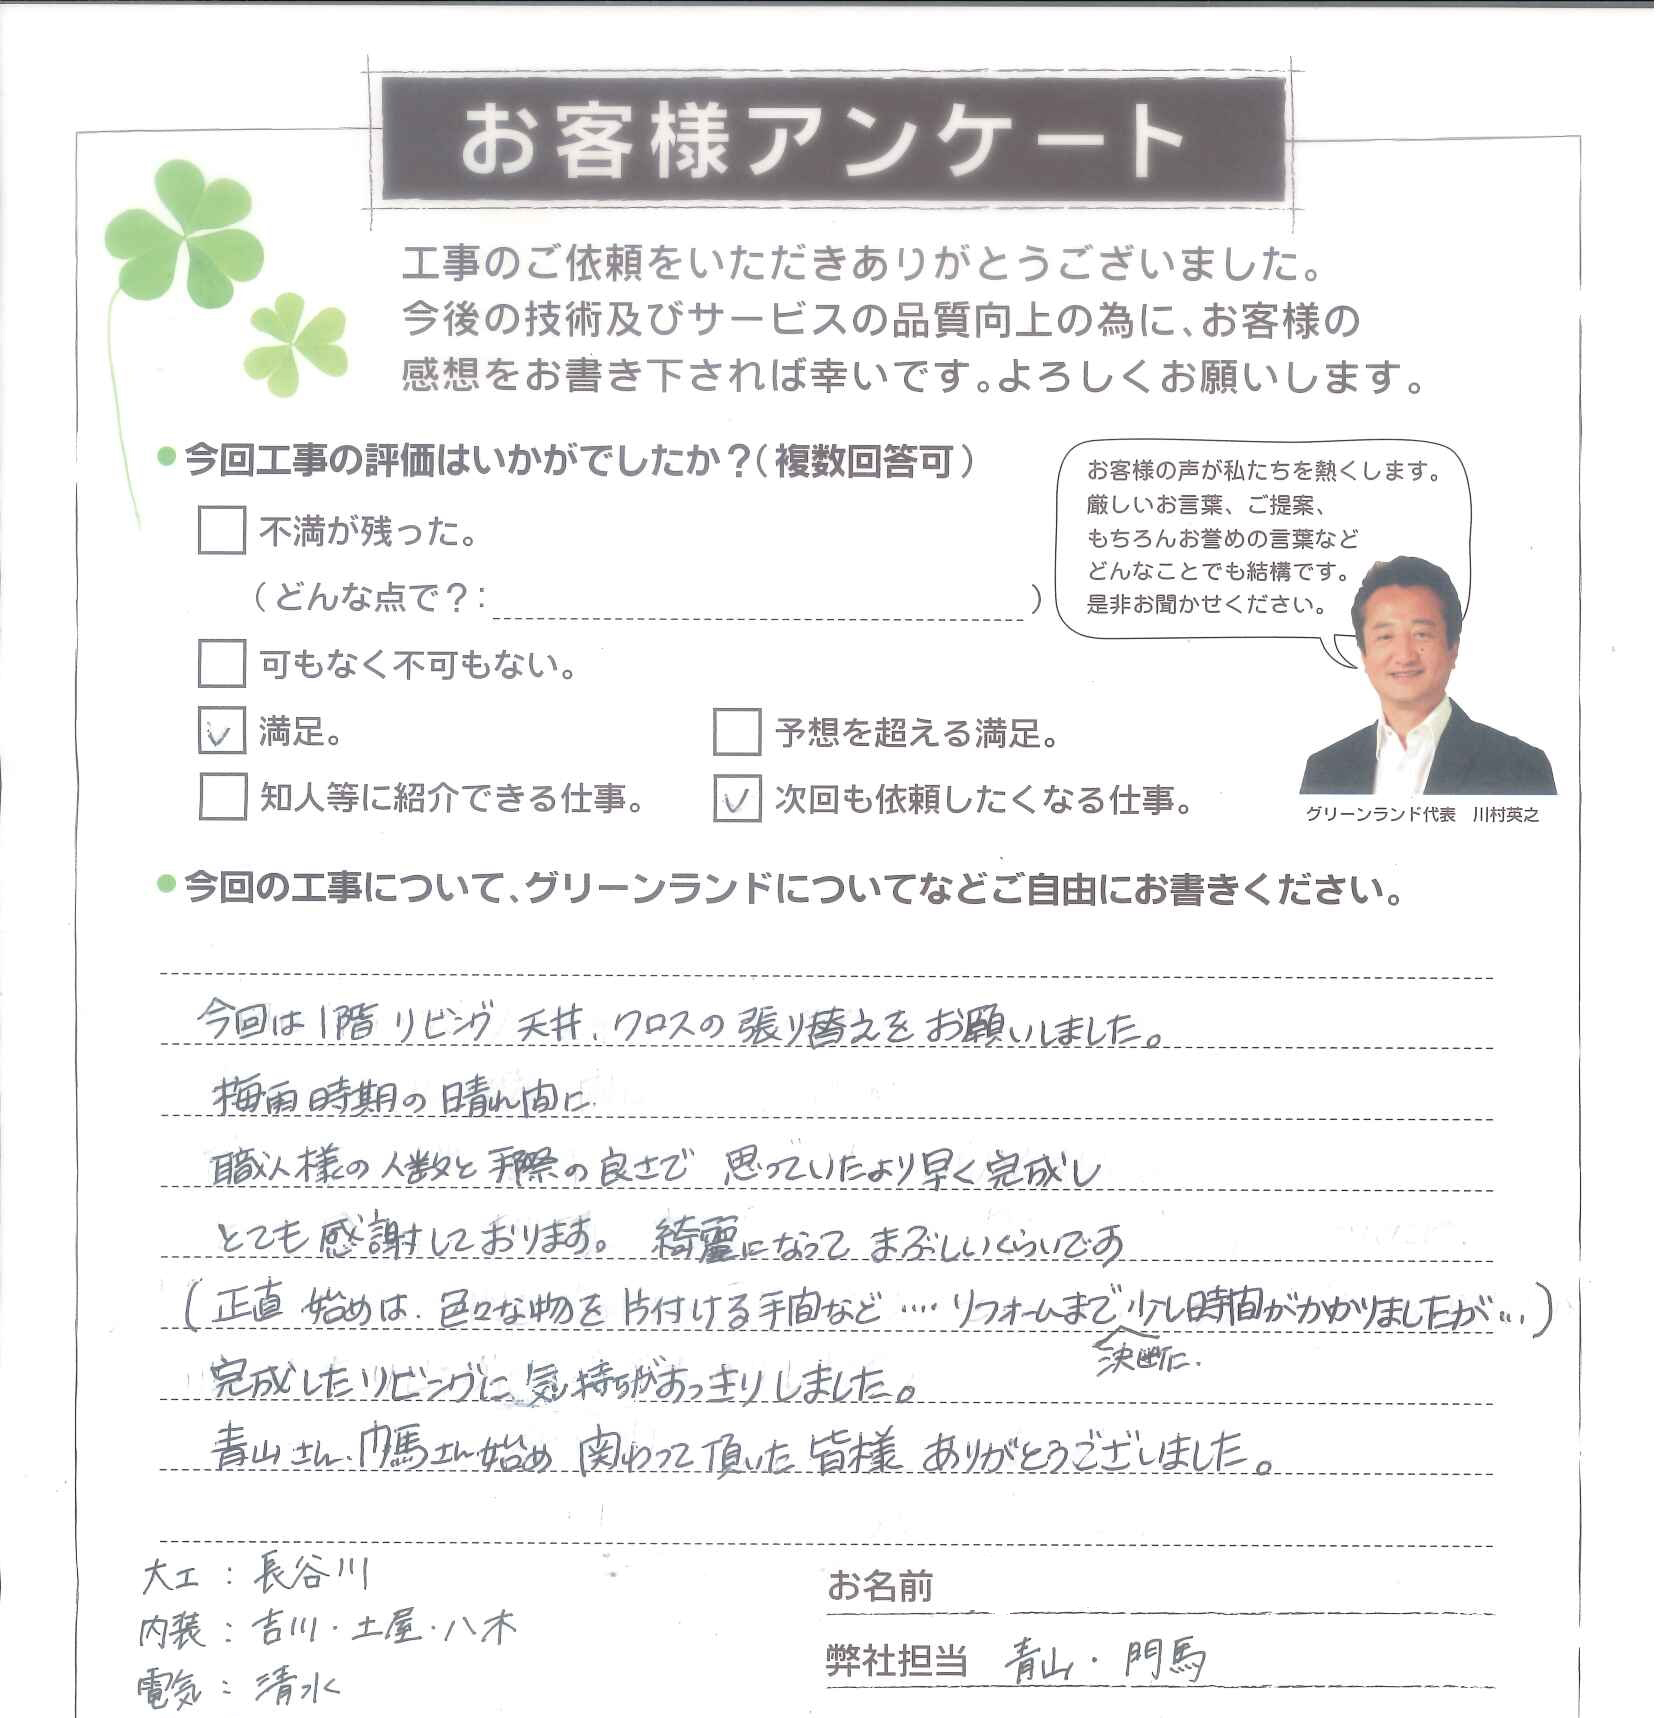 お客様アンケート
工事のご依頼をいただきありがとうございました。
今後の技術及びサービスの品質向上の為に、お客様の
感想をお書き下されば幸いです。よろしくお願いします。
今回工事の評価はいかがでしたか?(複数回答可)
不満が残った。
(どんな点で?: )
可もなく不可もない。
満足。
予想を超える満足。
知人等に紹介できる仕事。
次回も依頼したくなる仕事。
お客様の声が私たちを熱くします。
厳しいお言葉、ご提案、
もちろんお誉めの言葉など
どんなことでも結構です。
是非お聞かせください。
グリーンランド代表 川村英之
今回の工事について、グリーンランドについてなどご自由にお書きください。
今回は1階リビング 天井、クロスの張り替えをお願いしました。
梅雨時期の晴れ間に
職人様の人数と手際の良さで 思っていたより早く完成し
とても感謝しております。 綺麗になって まぶしいくらいです
(正直 始めは、色々な物を片付ける手間など‥‥リフォームまで少し時間がかかりましたが…)
決断に
完成したリビングに気持ちがすっきりしました。
青山さん、門馬さん始め 関わって頂いた皆様 ありがとうございました。
大工:長谷川
内装:吉川・土屋・八木
電気:清水
お名前
弊社担当 青山・門馬